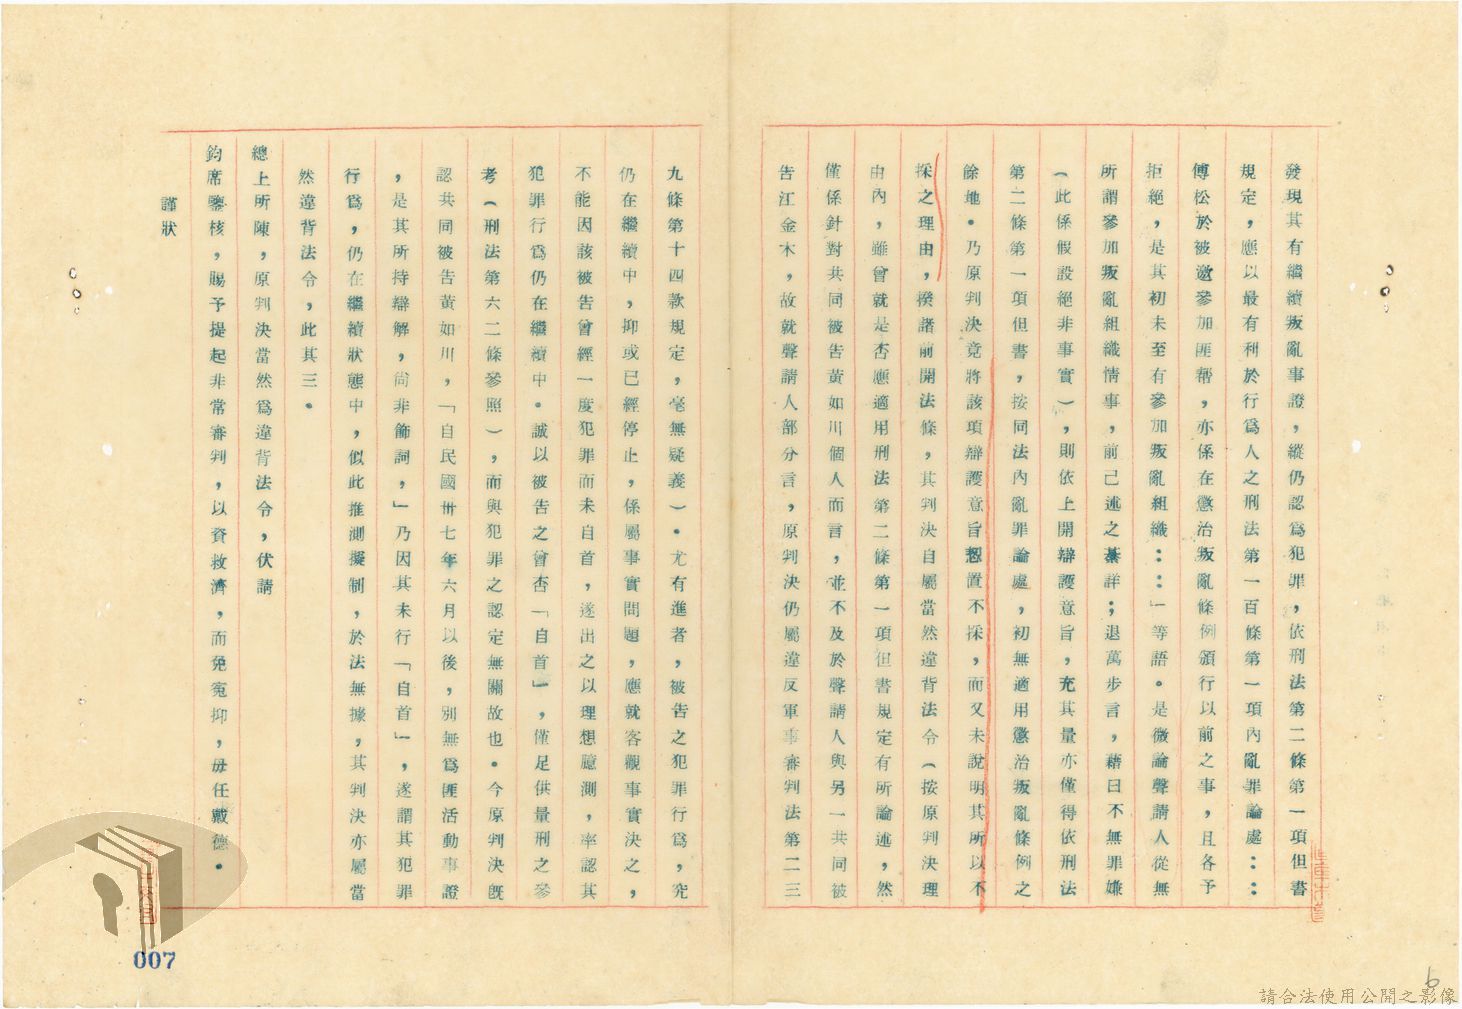 發現其有繼續叛亂事證，縱仍認為犯罪，依刑法第二條第一項但書
規定，應以最有利於行為人之刑法第一百條第一項內亂罪論處：：
傅松於被邀參加匪幫，亦係在懲治叛亂條例頒行以前之事，且各予
拒絕，是其初未至有參加叛亂組織：：」等語。是微論聲請人從無
所謂參加叛亂組織情事，前已述之綦詳；退萬步言，藉曰不無罪嫌
（此係假設絕非事實），則依上開辯護意旨，充其量亦僅得依刑法
第二條第一項但書，按同法內亂罪論處，初無適用懲治叛亂條例之
餘地。乃原判決竟將該項辯護意旨恝置不採，而又未說明其所以不
採之理由，揆諸前開法條，其判決自屬當然違背法令（按原判決理
由內，雖曾就是否應適用刑法第二條第一項但書規定有所論述，然
僅係針對共同被告黃如川個人而言，並不及於聲請人與另一共同被
告江金木，故就聲請人部分言，原判決仍屬違反軍事審判法第二三
九條第十四款規定，毫無疑義）。尤有進者，被告之犯罪行為，究
仍在繼續中，抑或已經停止，係屬事實問題，應就客觀事實決之，
不能因該被告曾經一度犯罪而未自首，遂出之以理想臆測，率認其
犯罪行為仍在繼續中。誠以被告之曾否「自首」，僅足供量刑之參
考（刑法第六二條參照），而與犯罪之認定無關故也。今原判決既
認共同被告黃如川，「自民國卅七年六月以後，別無為匪活動事證
，是其所持辯解，尚非飾詞，」乃因其未行「自首」，遂謂其犯罪
行為，仍在繼續狀態中，似此推測擬制，於法無據，其判決亦屬當
然違背法令，此其三。
總上所陳，原判決當然為違背法令，伏請
鈞席鑒核，賜予提起非常審判，以資救濟，而免冤抑，毋任戴德。
謹狀
007
6
請合法使用公開之影像